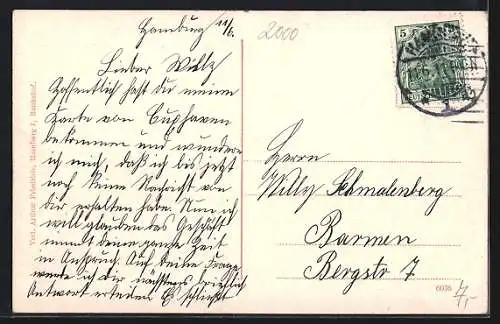 Hamburg 11/6.
2000
Lieber Willy
Hoffentlich hast du meine
Karte von Cuxhaven
bekommen und wundere
ich mich, daß ich bis jetzt
noch keine Nachricht von
dir erhalten habe. Nun ich
will glauben das Geschäft
nimmt deine ganze Zeit
in Anspruch. Auf deine Frage
werde ich dir nächstens brieflich
Antwort erteilen. Es schließt
Verl. Arthur Friedrich, Hamburg I, Bankshof.
5
Herrn
Willy Schmalenberg
Barmen
Bergstr 7
6036
7,-